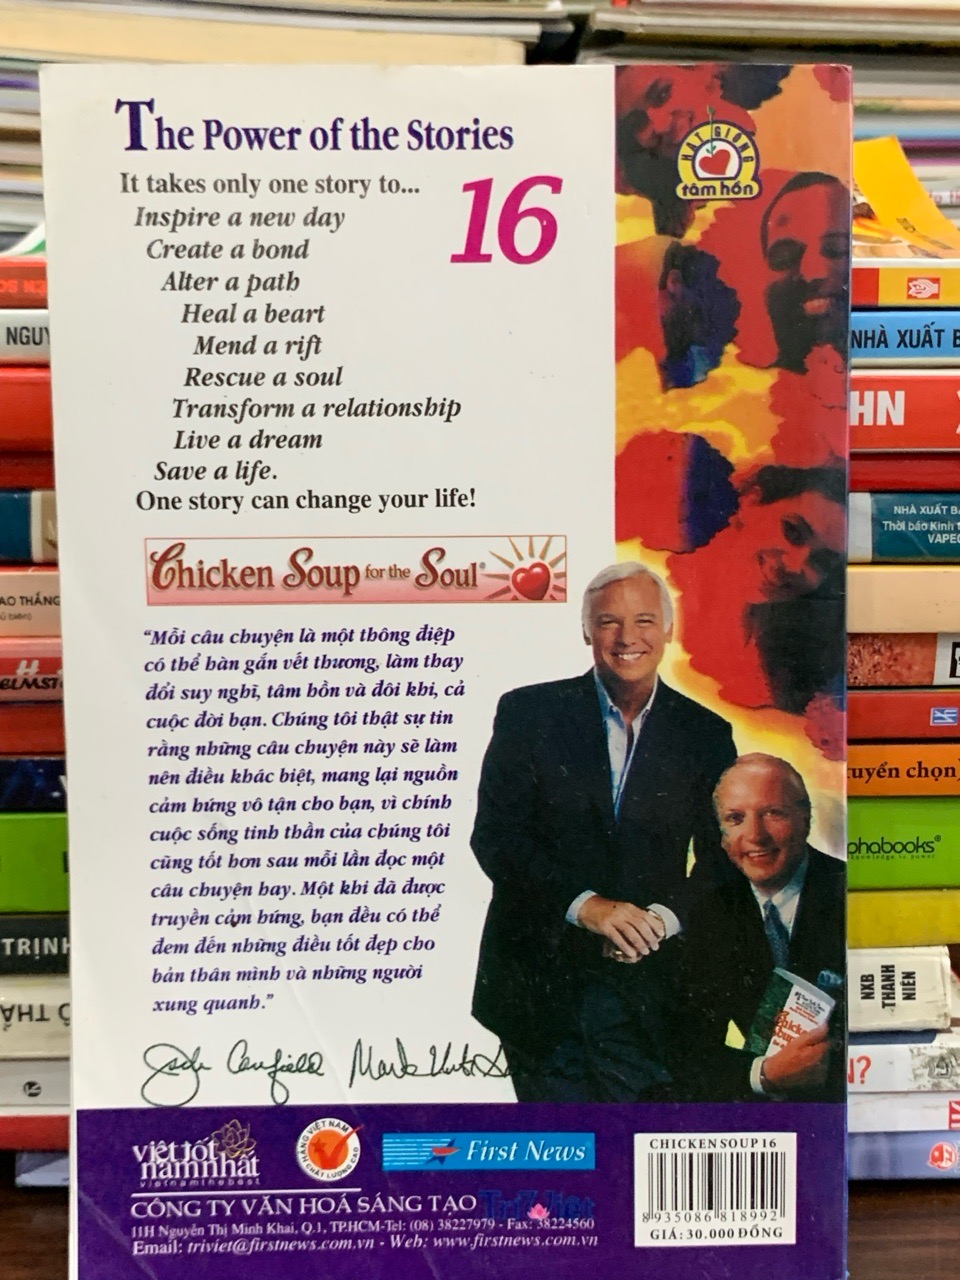 The Power of the Stories
It takes only one story to...
16
Inspire a new day
Create a bond
Alter a path
Heal a heart
Mend a rift
Rescue a soul
Transform a relationship
Live a dream
Save a life.
One story can change your life!
HẠT GIỐNG
tâm hồn
Chicken Soup for the Soul®
"Mỗi câu chuyện là một thông điệp
có thể hàn gắn vết thương, làm thay
đổi suy nghĩ, tâm hồn và đôi khi, cả
cuộc đời bạn. Chúng tôi thật sự tin
rằng những câu chuyện này sẽ làm
nên điều khác biệt, mang lại nguồn
cảm hứng vô tận cho bạn, vì chính
cuộc sống tinh thần của chúng tôi
cũng tốt hơn sau mỗi lần đọc một
câu chuyện hay. Một khi đã được
truyền cảm hứng, bạn đều có thể
đem đến những điều tốt đẹp cho
bản thân mình và những người
xung quanh."
Jack Canfield
việt tốt
namnhất
vietnamthebest
HÀNG VIỆT NAM
CHẤT LƯỢNG CAO
First News
CÔNG TY VĂN HOÁ SÁNG TẠO Trí Việt
11H Nguyễn Thị Minh Khai, Q.1, TP.HCM-Tel: (08) 38227979 - Fax: 38224560
Email: triviet@firstnews.com.vn - Web: www.firstnews.com.vn
CHICKEN SOUP 16
8 935086 818992
GIÁ: 30.000 ĐỒNG
NGUY
AO THẮNG
TRỊNH
NHÀ XUẤT B
HN
NHÀ XUẤT BẢ
Thời báo Kinh t
VAPEC
tuyển chọn)
phabooks®
knowledge is power
NXB
THANH
NIÊN
N?